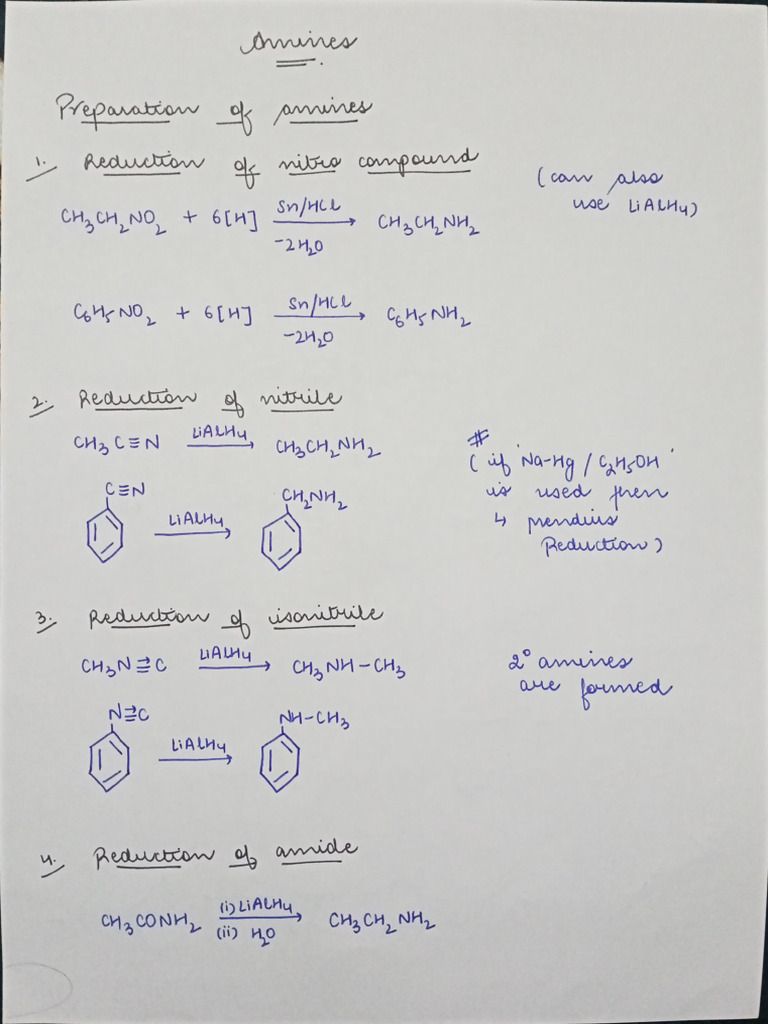 Amines
Preparation of amines
1. Reduction of nitro compound
(can also
use LiAlH4)
CH3CH2NO2 + 6[H] Sn/HCl → CH3CH2NH2
-2H2O
C6H5NO2 + 6[H] Sn/HCl → C6H5NH2
-2H2O
2. Reduction of nitrile
CH3C≡N LiAlH4 → CH3CH2NH2
#
(if Na-Hg / C2H5OH
is used then
↳ mendius
Reduction)
C≡N
LiAlH4 →
CH2NH2
3. Reduction of isonitrile
CH3N≡C LiAlH4 → CH3NH-CH3
2° amines
are formed
N≡C
LiAlH4 →
NH-CH3
4. Reduction of amide
CH3CONH2 (i) LiAlH4 → CH3CH2NH2
(ii) H2O